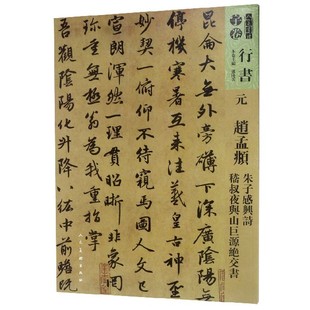 行書
元
趙孟頫
朱子感興詩
嵇叔夜與山巨源絕交書
崑崙大無外旁礴下深廣陰陽無
停機寒暑互來往羲皇古神聖
妙契一俯仰不待窺馬圖人文已
宣朗渾然一理貫昭晰非象罔
珍重無極翁為我重指掌
吾觀陰陽化升降八紘中前瞻既